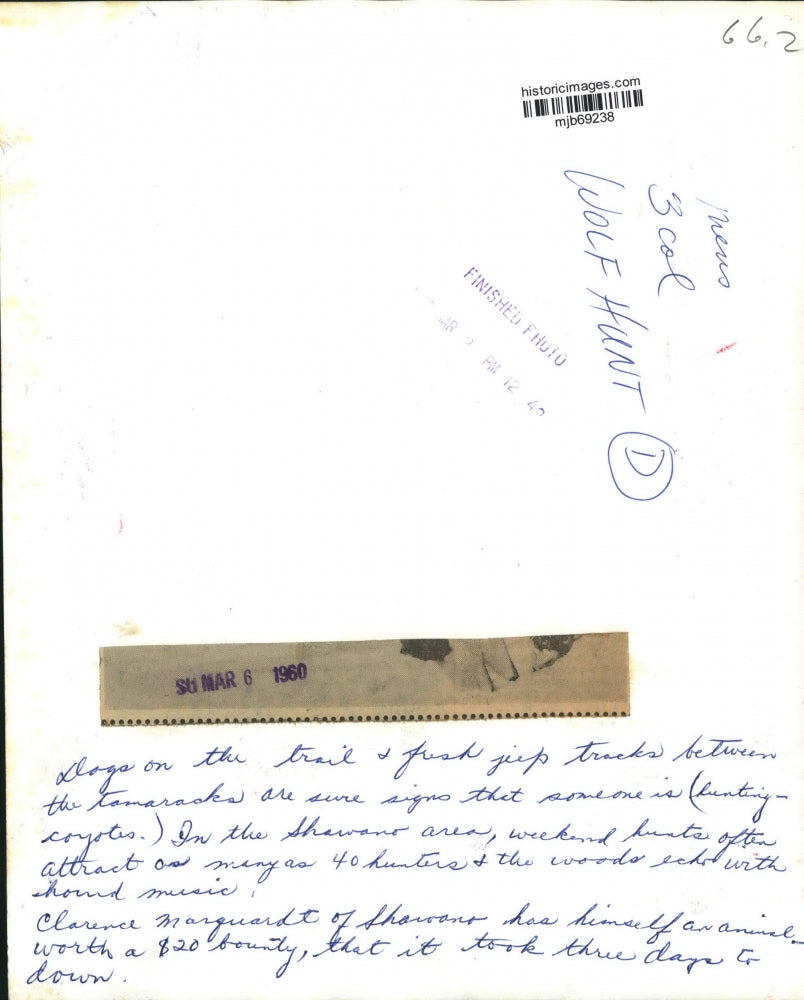 66.2
historicimages.com
mjb69238
mens
3 col
WOLF HUNT
D
FINISHED PHOTO
PM 12 42
SU MAR 6 1960
Dogs on the trail & fresh jeep tracks between
the tamaracks are sure signs that someone is (hunting-
coyotes.) In the Shawano area, weekend hunts often
attract as many as 40 hunters & the woods echo with
hound music.
Clarence Marquardt of Shawano has himself an animal
worth a $20 bounty, that it took three days to
down.